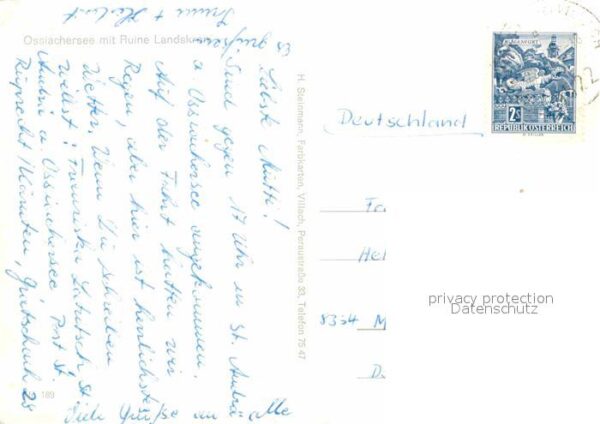 Ossiachersee mit Ruine Landskron
Liebste Mutti!
Sind gegen 17 Uhr in St. Andrä
a Ossiachersee angekommen.
Auf der Fahrt hatten wir
Regen, aber hier ist herrlichstes
Wetter. Wenn Du schreiben
willst: Franziska
Andrä a. Ossiachersee, Post St.
Ruprecht/Kärnten, 28
Viele Grüße an alle
H. Steinmann, Farbkarten, Villach, Peraustraße 33, Telefon 75 47
189
Deutschland
KLAGENFURT
2S
REPUBLIK ÖSTERREICH
Fr
He
8354 M
D
privacy protection
Datenschutz